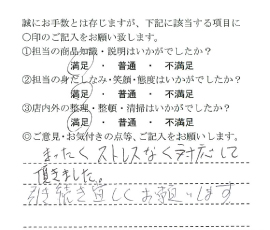 誠にお手数とは存じますが、下記に該当する項目に
〇印のご記入をお願い致します。
①担当の商品知識・説明はいかがでしたか？
満足 ・ 普通 ・ 不満足
②担当の身だしなみ・笑顔・態度はいかがでしたか？
満足 ・ 普通 ・ 不満足
③店内外の整理・整頓・清掃はいかがでしたか？
満足 ・ 普通 ・ 不満足
◎ご意見・お気付きの点等、ご記入をお願いします。
まったくストレスなく対応して
頂きました。
引き続き宜しくお願いします